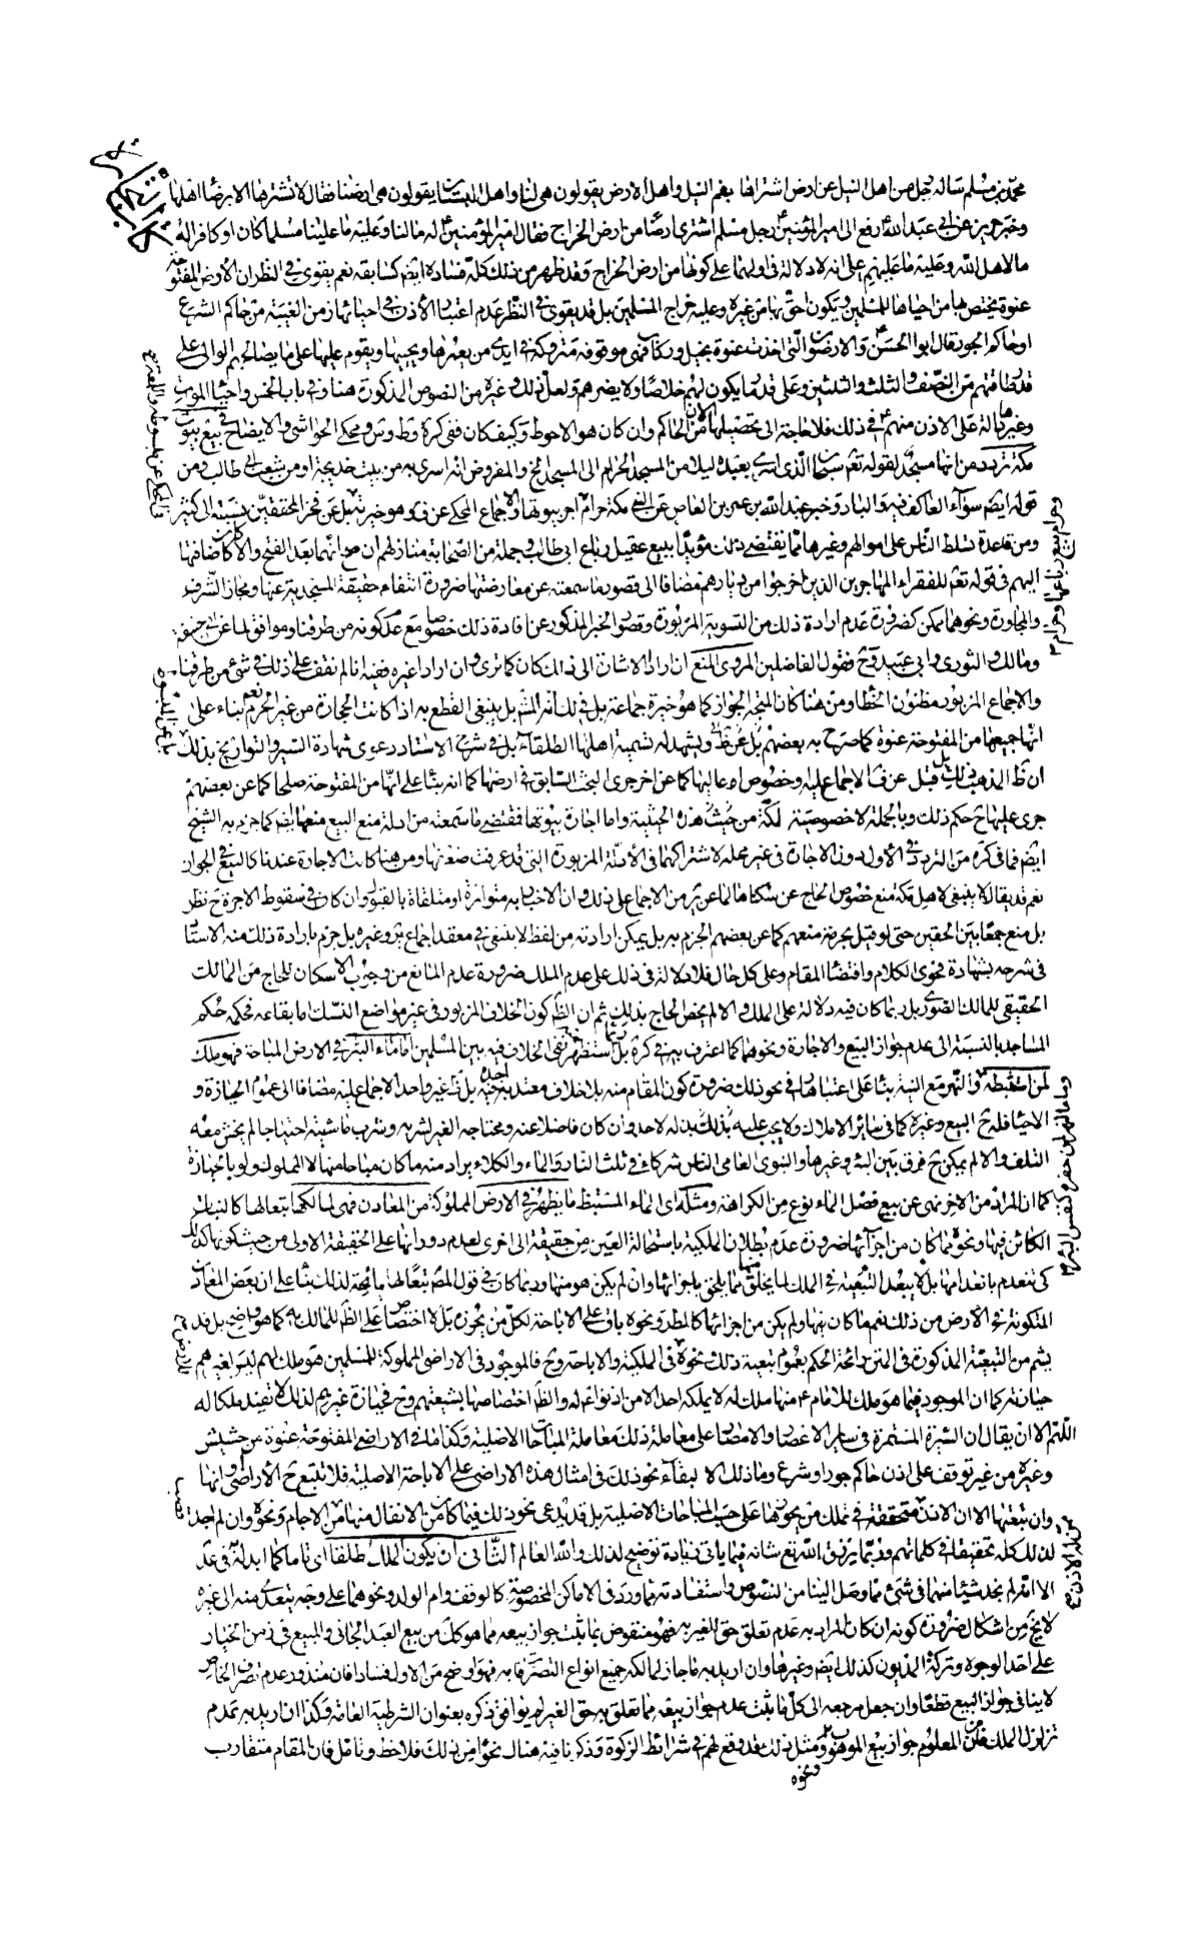 محمد بن مسلم سأله رجل من اهل النيل عن ارض اشتراها بفم النيل واهل الارض يقولون هى لنا واهل يقولون هى ارضنا فقال لا تشترها الا برضا اهلها
وخبر حريز عن ابى عبد الله رفع الى امير المؤمنين رجل مسلم اشترى ارضا من ارض الخراج فقال امير المؤمنين له ما لنا وعليه ما علينا مسلما كان او كافرا له
ما لاهل الله وعليه ما عليهم على انه لا دلالة فى اولهما على كونها من ارض الخراج وقد ظهر من ذلك كله فساده ايضا كسابقه نعم يقوى فى النظر ان الارض المفتوحة
عنوة يختص بها من احياها للمسلمين ويكون احق بها من غيره وعليه خراج المسلمين بل قد يقوى فى النظر عدم اعتبار الاذن فى احيائها زمن الغيبة من حاكم الشرع
او حاكم الجور قال ابو الحسن والارضون التى اخذت عنوة بخيل وركاب فهى موقوفة متروكة فى ايدى من يعمرها ويحييها ويقوم عليها على ما يصالحهم الوالى على
قدر طاقتهم من النصف والثلث والثلثين وعلى قدر ما يكون لهم صلاحا ولا يضرهم ولعل ذلك وغيره من النصوص المذكورة هنا وفى باب الخمس واحياء الموات
وغيرها دالة على الاذن منهم فى ذلك فلا حاجة الى تحصيلها الان من الحاكم وان كان هو الاحوط وكيف كان ففى كرة وط وش ومحكى الحواشى والايضاح فى بيع بيوت
مكة تردد من انها مسجد لقوله تعم سبحان الذى اسرى بعبده ليلا من المسجد الحرام الى المسجد الخ والمفروض انه اسرى به من بيت خديجة او من شعب ابى طالب ومن
قوله ايضم سواء العاكف فيه والباد وخبر عبد الله بن عمر بن العاص عن النبى مكة حرام اجر بيوتها والاجماع المحكى عن ف وهو خبر نقل عن فخر المحققين نسبته الى كثير
ومن قاعدة تسلط الناس على اموالهم وغيرها مما يقتضى ذلك مؤيدا ببيع عقيل رباع ابى طالب وجملة من الصحابة منازلهم
اليهم فى قوله تعم للفقراء المهاجرين الذين اخرجوا من ديارهم مضافا الى قصور ما سمعته عن معارضتها ضرورة انتفاء حقيقة المسجدية عنها ومجاز الشرف
والمجاورة ونحوهما يمكن كضرورة عدم ارادة ذلك من التسوية المزبورة وقصور الخبر المذكور عن افادة ذلك خصوصا مع عدم كونه من طرفنا وموافق لما عن ابى حنيفة
ومالك والثورى وابى عبيد وح فقول الفاضلين المروى المنع ان ارادا الاشارة الى ذلك كان كما ترى وان ارادا غيره ففيه انا لم نقف على ذلك فى شئ من طرقنا
والاجماع المزبور مظنون الخطأ ومن هنا كان المتجه الجواز كما هو خيرة جماعة بل فى لك انه المشهور بل ينبغى القطع به اذا كانت الحجارة من غير الحرم نعم بناء على
انها جميعها من المفتوحة عنوة كما صرح به بعضهم ويشهد له تسمية اهلها الطلقاء بل فى شرح الاستاد دعوى شهادة السير والتواريخ بذلك
جرى عليها ح حكم ذلك وبالجملة لا خصوصية لمكة من حيث هذه الحيثية واما اجارة بيوتها فمقتضى ما سمعته من ادلة منع البيع منعها ايضم كما جزم به الشيخ
ايضم فما فى كرة من التردد فى الاول دون الاجارة فى غير محله لاشتراكهما فى الادلة المزبورة التى قد عرفت ضعفها ومن هنا كانت الاجارة عندنا كالبيع فى الجواز
نعم قد يقال لا ينبغى لاهل مكة منع خصوص الحاج عن سكناها لما عن من الاجماع على ذلك وان الاخبار به متواترة او متلقاة بالقبول وان كان فى سقوط الاجرة ح نظر
بل منع جمعا بين الحقين حتى لو قيل بحرمة منعهم كما عن بعضهم الجزم به بل يمكن ارادته من لفظ لا ينبغى فى معقد اجماع وغيره بل جزم بارادة ذلك منه الاستاد
فى شرحه بشهادة فحوى الكلام واقتضاء المقام وعلى كل حال فلا دلالة فى ذلك على عدم الملك ضرورة عدم المانع من وجوب الاسكان للحاج من المالك
الحقيقى للمالك الصورى بل ربما كان فيه دلالة على الملك والا لم يخص الحاج بذلك ثم ان الظ كون الخلاف المزبور فى غير مواضع النسك اما بقاعه فحكمه حكم
المساجد بالنسبة الى عدم جواز البيع والاجارة ونحوهما كما اعترف به فى كرة بل استظهر نفى الخلاف فيه بين المسلمين اما ماء البئر فى الارض المباحة فهو ملك
لمن استنبطه والنهر مع النية بناء على اعتبارها فى نحو ذلك ضرورة كون المقام منه بلا خلاف معتد به اجده بل غير واحد الاجماع عليه مضافا الى عموم الحيازة و
الاحياء فله ح البيع وغيره كما فى سائر الاملاك ولا يجب عليه بذله لاحد وان كان فاضلا عنه ومحتاجه الغير لشربه وشرب ماشيته احتياجا لم يخش معه
التلف والا لم يمكن ح فرق بين البئر وغيرها والنبوى العامى الناس شركاء فى ثلث النار والماء والكلاء يراد منه ما كان مباحا منها لا المملوك ولو بالحيازة
كما ان المراد من الاخر نهى عن بيع فضل الماء نوع من الكراهة ومثله اى الماء المستنبط ما يظهر فى الارض المملوكة من المعادن فهى لمالكها تبعا لها كالنبات
الكائن فيها ونحوه مما كان من اجزائها ضرورة عدم بطلان الملكية باستحالة العين من حقيقة الى اخرى لعدم دورانها على الحقيقة الاولى من حيث كونها كذلك
كى تنعدم بانعدامها بل لا يبعد التبعية فى الملك لما يخلق فيها مما يلحق باجزائها وان لم يكن هو منها وربما كان فى قول المصم تبعا لها رائحة لذلك بناء على ان بعض المعادن
المتكونة فى الارض من ذلك نعم ما كان فيها ولم يكن من اجزائها كالمطر ونحوه باق على الاباحة لكل من يحوزه بلا اختصاص على الظ للمالك به كما هو واضح بل قد
يشم من التبعية المذكورة فى المتن رائحة الحكم بعموم تبعية ذلك نحوه فى الملكية والاباحة وح فالموجود فى الاراضى المملوكة للمسلمين هو ملك لهم ليس لغيرهم
حيازته كما ان الموجود فيما هو ملك للامام ع منها ملك له لا يملكه احد الا من اذنوا له والظ اختصاصها بشيعتهم وح فحيازة غيرهم لذلك لا تفيد ملكا له
اللهم الا ان يقال ان السيرة المستمرة فى سائر الاعصار والامصار على معاملة ذلك معاملة المباحات الاصلية وكذا ما فى الاراضى المفتوحة عنوة من حشيش
وغيره من غير توقف على اذن حاكم جور او شرع وما ذلك الا لبقاء نحو ذلك فى امثال هذه الاراضى على الاباحة الاصلية فلا تتبع ح الاراضى او انها
وان تبعتها الا ان الاذن متحققة فى تملك من يحوزها على حسب المباحات الاصلية بل قد يدعى نحو ذلك فيما كان من الانفال منها من الاجام ونحوه وان لم اجد
لذلك كله تحقيقا فى كلماتهم وربما يرزق الله تع شانه فيما ياتى زيادة توضيح لذلك والله العالم الثانى ان يكون الملك طلقا اى تاما كما ابدله فى عد
الا انا لم نجد شيئا منهما فى شئ مما وصل الينا من النصوص واستفادته مما ورد فى الاماكن المخصوصة كالوقف وام الولد ونحوهما على وجه يتعدى منه الى غيره
لا يخ من اشكال ضرورة كونه ان كان المراد به عدم تعلق حق الغير به فهو منقوض بما ثبت جواز بيعه مما هو كك من بيع العبد الجانى والبيع فى زمن الخيار
على احد الوجوه وتركة المديون كذلك ايضم وغيرها وان اريد به ما جاز لمالكه جميع انواع التصرف به فهو اوضح من الاول فسادا فان منذور عدم تصرف الخاص
لا ينافى جواز البيع قطعا وان جعل مرجعه الى كل ما ثبت عدم جواز بيعه مما تعلق به حق الغير لم يوافق ذكره بعنوان الشرطية العامة وكذا ان اريد به عدم
تزلزل الملك فان من المعلوم جواز بيع الموهوب ونحوه ومثل ذلك قد وقع لهم فى شرائط الزكوة وذكرنا فيه هناك نحوا من ذلك فلاحظ وتامل فان المقام متقارب